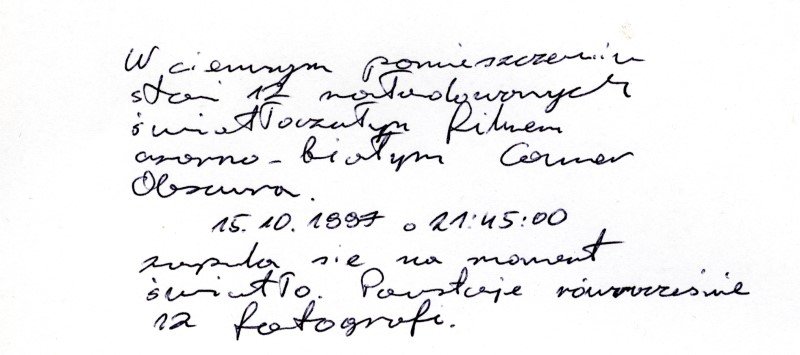 W ciemnym pomieszczeniu
stoi 12 naładowanych
światłoczułym filmem
czarno-białym Camer
Obscura.
15.10.1997 o 21:45:00
zapala się na moment
światło. Powstaje równocześnie
12 fotografi.